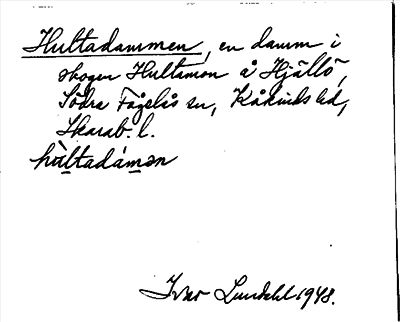 Hultadammen, en damm i
skogen Hultamon å Hjällö,
Södra Fågelås sn, Kåkinds hd,
Skarab. l.
hùltadámən
Ivar Lundahl 1948.